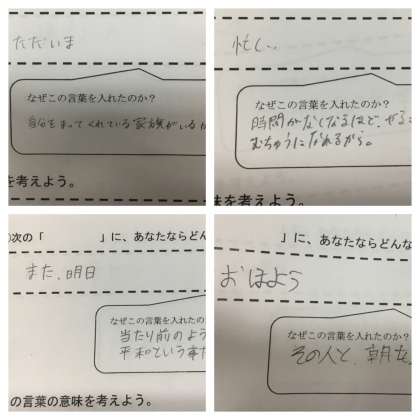 ただいま
なぜこの言葉を入れたのか？
自分をまってくれている家族がいるか
を考えよう。
忙く..
なぜこの言葉を入れたのか？
時間がなくなるほど、ぜるこ
むちゅうになれるから。
味を考えよう。
○次の「　　　」に、あなたならどん
また、明日
なぜこの言葉を入れたの
当たり前のよう
平和という事だ
の言葉の意味を考えよう。
」に、あなたならどんな
おはよう
なぜこの言葉を入れたのか？
その人と、朝を